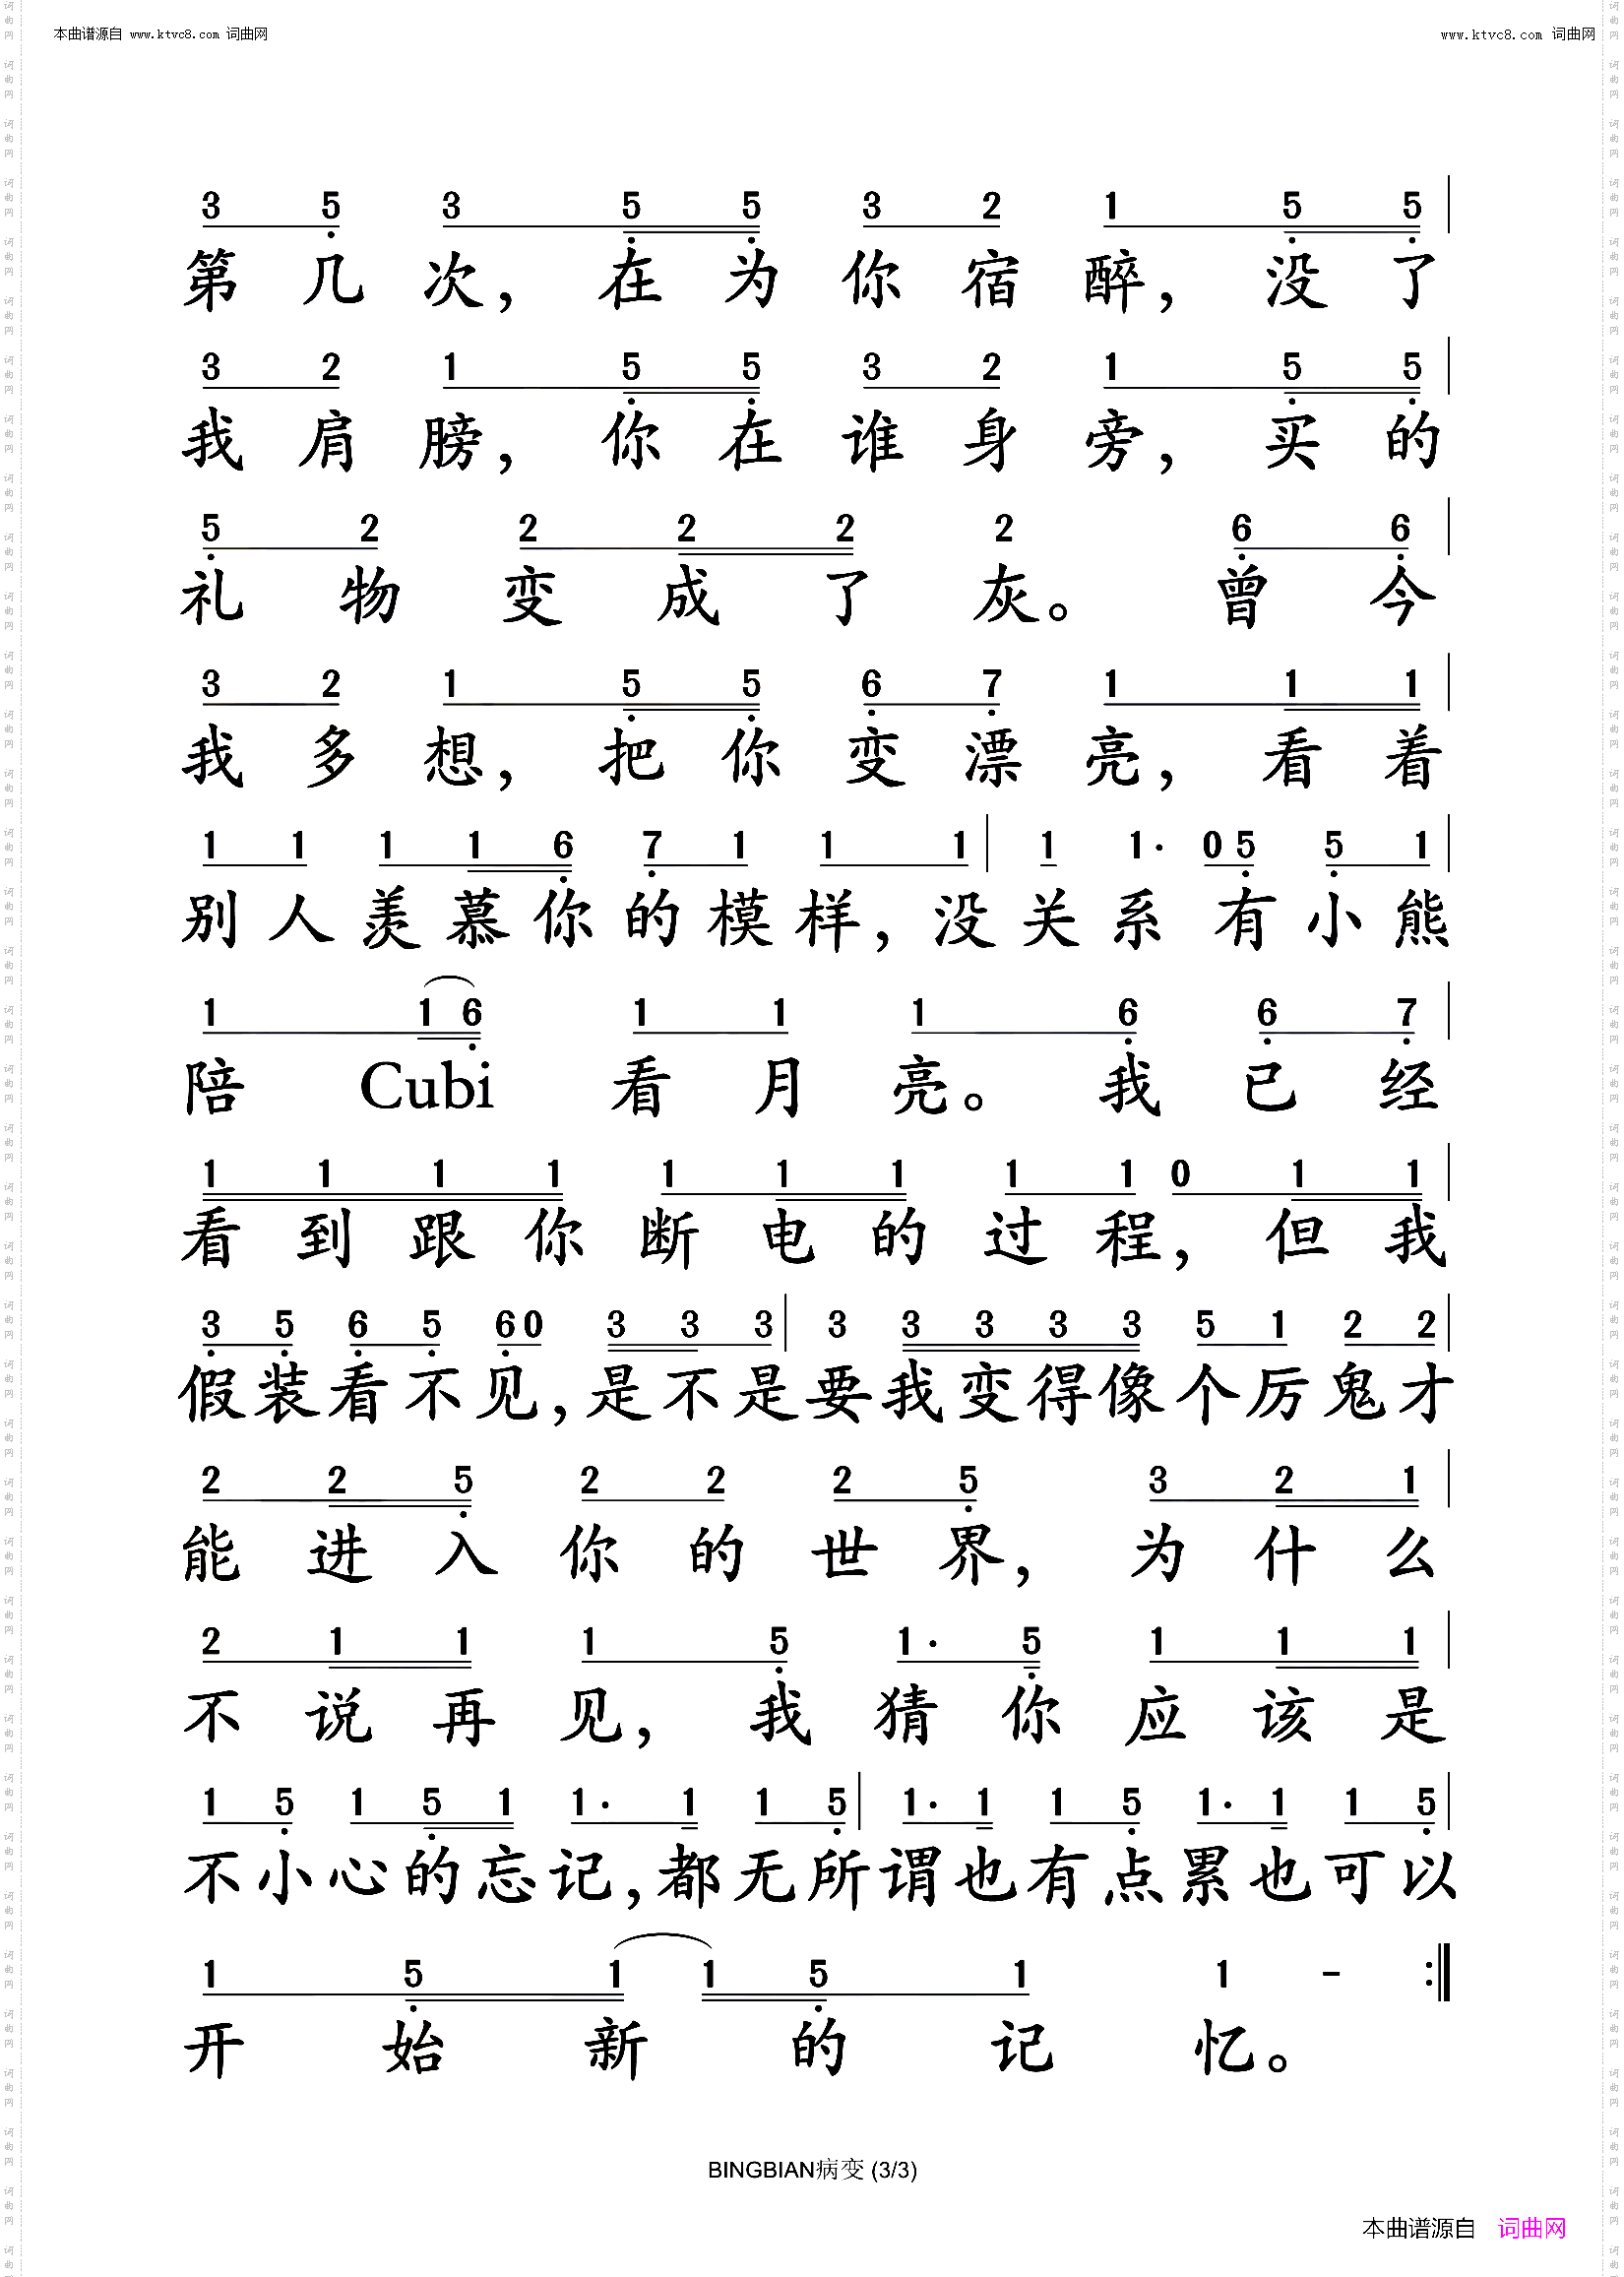 本曲谱源自 www.ktvc8.com 词曲网
www.ktvc8.com 词曲网
3 5 3 5 5 3 2 1 5 5
第几次，在为你宿醉，没了
3 2 1 5 5 3 2 1 5 5
我肩膀，你在谁身旁，买的
5 2 2 2 2 2 6 6
礼物变成了灰。曾今
3 2 1 5 5 6 7 1 1 1
我多想，把你变漂亮，看着
1 1 1 1 6 7 1 1 1 | 1 1· 0 5 5 1
别人羡慕你的模样，没关系有小熊
1 1 6 1 1 1 6 6 7
陪Cubi看月亮。我已经
1 1 1 1 1 1 1 1 1 0 1 1
看到跟你断电的过程，但我
3 5 6 5 6 0 3 3 3 | 3 3 3 3 3 5 1 2 2
假装看不见，是不是要我变得像个厉鬼才
2 2 5 2 2 2 5 3 2 1
能进入你的世界，为什么
2 1 1 1 5 1· 5 1 1 1
不说再见，我猜你应该是
1 5 1 5 1 1· 1 1 5 | 1· 1 1 5 1· 1 1 5
不小心的忘记，都无所谓也有点累也可以
1 5 1 1 5 1 1 - :‖
开始新的记忆。
BINGBIAN病变 (3/3)
本曲谱源自 词曲网